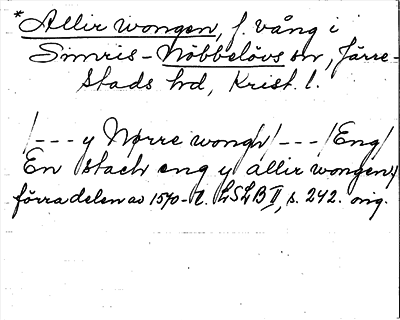 *Allir wongen, f. vång i
Simris-Nöbbelövs sn, Järre-
stads hd, Krist. l.
/--- y Nørre wongh/ /---/Eng/
En stach eng y allir wongen/
förra delen av 1570-t. LSLB II, s. 242. orig.